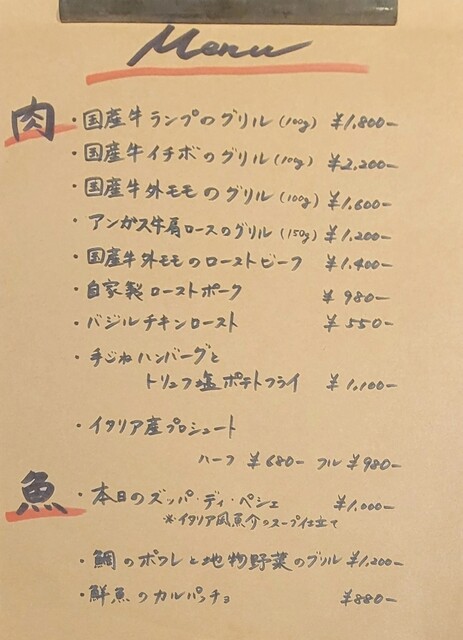 Menu
肉
・国産牛ランプのグリル(100g) ¥1,800-
・国産牛イチボのグリル(100g) ¥2,200-
・国産牛外モモのグリル(100g) ¥1,600-
・アンガス牛肩ロースのグリル(150g) ¥1,200-
・国産牛外モモのローストビーフ ¥1,400-
・自家製ローストポーク ¥980-
・バジルチキンロースト ¥550-
・手ごねハンバーグと
トリュフ塩ポテトフライ ¥1,100-
・イタリア産プロシュート
ハーフ ¥680- フル ¥980-
魚
・本日のズッパ・ディ・ペシェ ¥1,000-
※イタリア風魚介のスープ仕立て
・鯛のポワレと地物野菜のグリル ¥1,200-
・鮮魚のカルパッチョ ¥880-